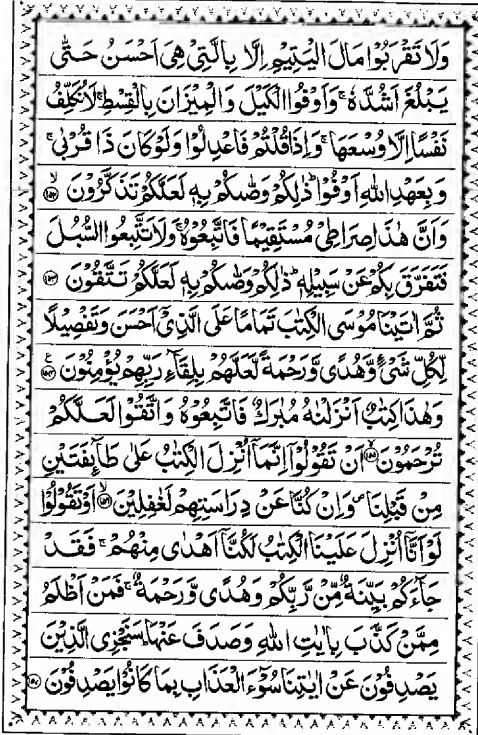 وَلَا تَقْرَبُوْا مَالَ الْيَتِيْمِ اِلَّا بِالَّتِيْ هِيَ اَحْسَنُ حَتّٰى
يَبْلُغَ اَشُدَّهٗ ۚ وَاَوْفُوا الْكَيْلَ وَالْمِيْزَانَ بِالْقِسْطِ ۚ لَا نُكَلِّفُ
نَفْسًا اِلَّا وُسْعَهَا ۚ وَاِذَا قُلْتُمْ فَاعْدِلُوْا وَلَوْ كَانَ ذَا قُرْبٰى ۚ
وَبِعَهْدِ اللّٰهِ اَوْفُوْا ؕ ذٰلِكُمْ وَصّٰىكُمْ بِهٖ لَعَلَّكُمْ تَذَكَّرُوْنَ ۙ﴿۱۵۲﴾
وَاَنَّ هٰذَا صِرَاطِيْ مُسْتَقِيْمًا فَاتَّبِعُوْهُ ۚ وَلَا تَتَّبِعُوا السُّبُلَ
فَتَفَرَّقَ بِكُمْ عَنْ سَبِيْلِهٖ ؕ ذٰلِكُمْ وَصّٰىكُمْ بِهٖ لَعَلَّكُمْ تَتَّقُوْنَ ﴿۱۵۳﴾
ثُمَّ اٰتَيْنَا مُوْسَى الْكِتٰبَ تَمَامًا عَلَى الَّذِيْٓ اَحْسَنَ وَتَفْصِيْلًا
لِّكُلِّ شَيْءٍ وَّهُدًى وَّرَحْمَةً لَّعَلَّهُمْ بِلِقَآءِ رَبِّهِمْ يُؤْمِنُوْنَ ﴿۱۵۴﴾ ع
وَهٰذَا كِتٰبٌ اَنْزَلْنٰهُ مُبٰرَكٌ فَاتَّبِعُوْهُ وَاتَّقُوْا لَعَلَّكُمْ
تُرْحَمُوْنَ ۙ﴿۱۵۵﴾ اَنْ تَقُوْلُوْٓا اِنَّمَآ اُنْزِلَ الْكِتٰبُ عَلٰى طَآئِفَتَيْنِ
مِنْ قَبْلِنَا ۪ وَاِنْ كُنَّا عَنْ دِرَاسَتِهِمْ لَغٰفِلِيْنَ ۙ﴿۱۵۶﴾ اَوْ تَقُوْلُوْا
لَوْ اَنَّآ اُنْزِلَ عَلَيْنَا الْكِتٰبُ لَكُنَّآ اَهْدٰى مِنْهُمْ ۚ فَقَدْ
جَآءَكُمْ بَيِّنَةٌ مِّنْ رَّبِّكُمْ وَهُدًى وَّرَحْمَةٌ ۚ فَمَنْ اَظْلَمُ
مِمَّنْ كَذَّبَ بِاٰيٰتِ اللّٰهِ وَصَدَفَ عَنْهَا ؕ سَنَجْزِي الَّذِيْنَ
يَصْدِفُوْنَ عَنْ اٰيٰتِنَا سُوْٓءَ الْعَذَابِ بِمَا كَانُوْا يَصْدِفُوْنَ ﴿۱۵۷﴾